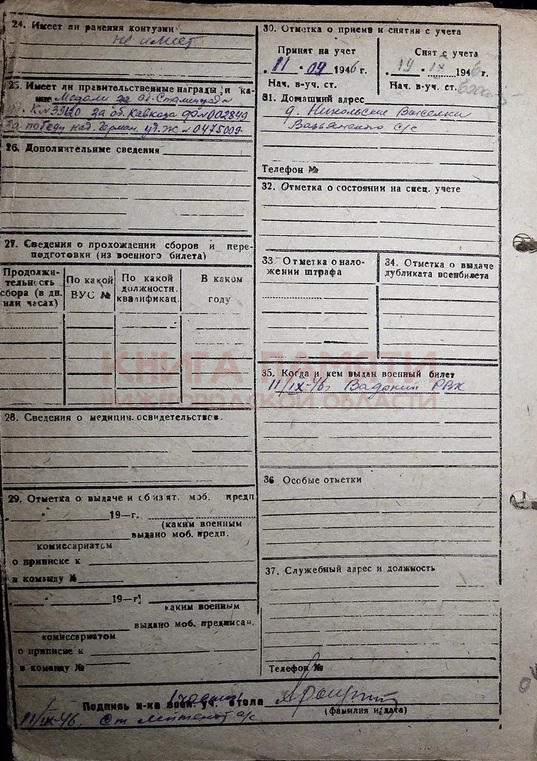 24. Имеет ли ранения контузии
не имеет
25. Имеет ли правительственные награды и ка-
кие Медали за об. Сталинграда
за об. Кавказа
за победу над Герман.
26. Дополнительные сведения
27. Сведения о прохождении сборов и пере-
подготовки (из военного билета)
Продолжи-
тельность
сбора (в дн.
или часах)
По какой
ВУС №
По какой
должности.
квалификац.
В каком
году
28. Сведения о медицин. освидетельствов.
29. Отметка о выдаче и с изят. моб. предп
19—г.
(каким военным
выдано моб. предп.
комиссариатом
о приписке к
в команду №
19—г.
каким военным
выдано моб. предписан.
комиссариатом
о приписке к
в команду №
30. Отметка о приеме и снятии с учета
Принят на учет
11 09 1946 г.
Нач. в-уч. ст.
Снят с учета
19 IX 194 г.
Нач. в-уч. ст.
31. Домашний адрес
д. Никольски Выселки
с/с
Телефон №
32. Отметка о состоянии на спец. учете
33. Отметка о нало-
жении штрафа
34. Отметка о выдаче
дубликата военбилета
35. Когда и кем выдан военный билет
11/IX-46г. РВК
36 Особые отметки
37. Служебный адрес и должность
Телефон №
КНИГА ПАМЯТИ
НИЖЕГОРОДСКОЙ ОБЛАСТИ
Подпись н-ка воен. уч. стола
(фамилия и дата)
11/IX-46. Ст. лейтенант а/с